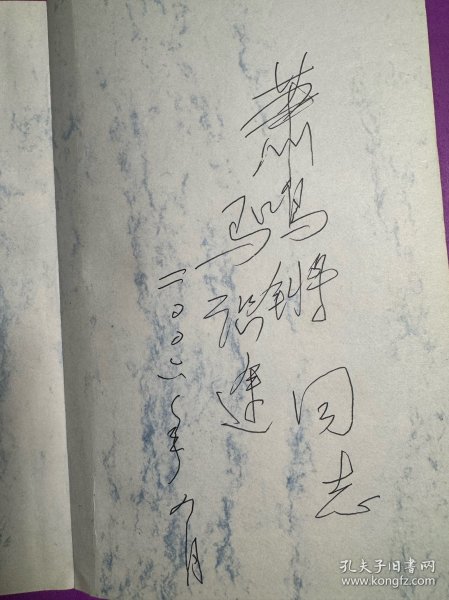 萧鸣锵同志
马识途
二〇〇六年九月
孔夫子旧书网
www.kongfz.com